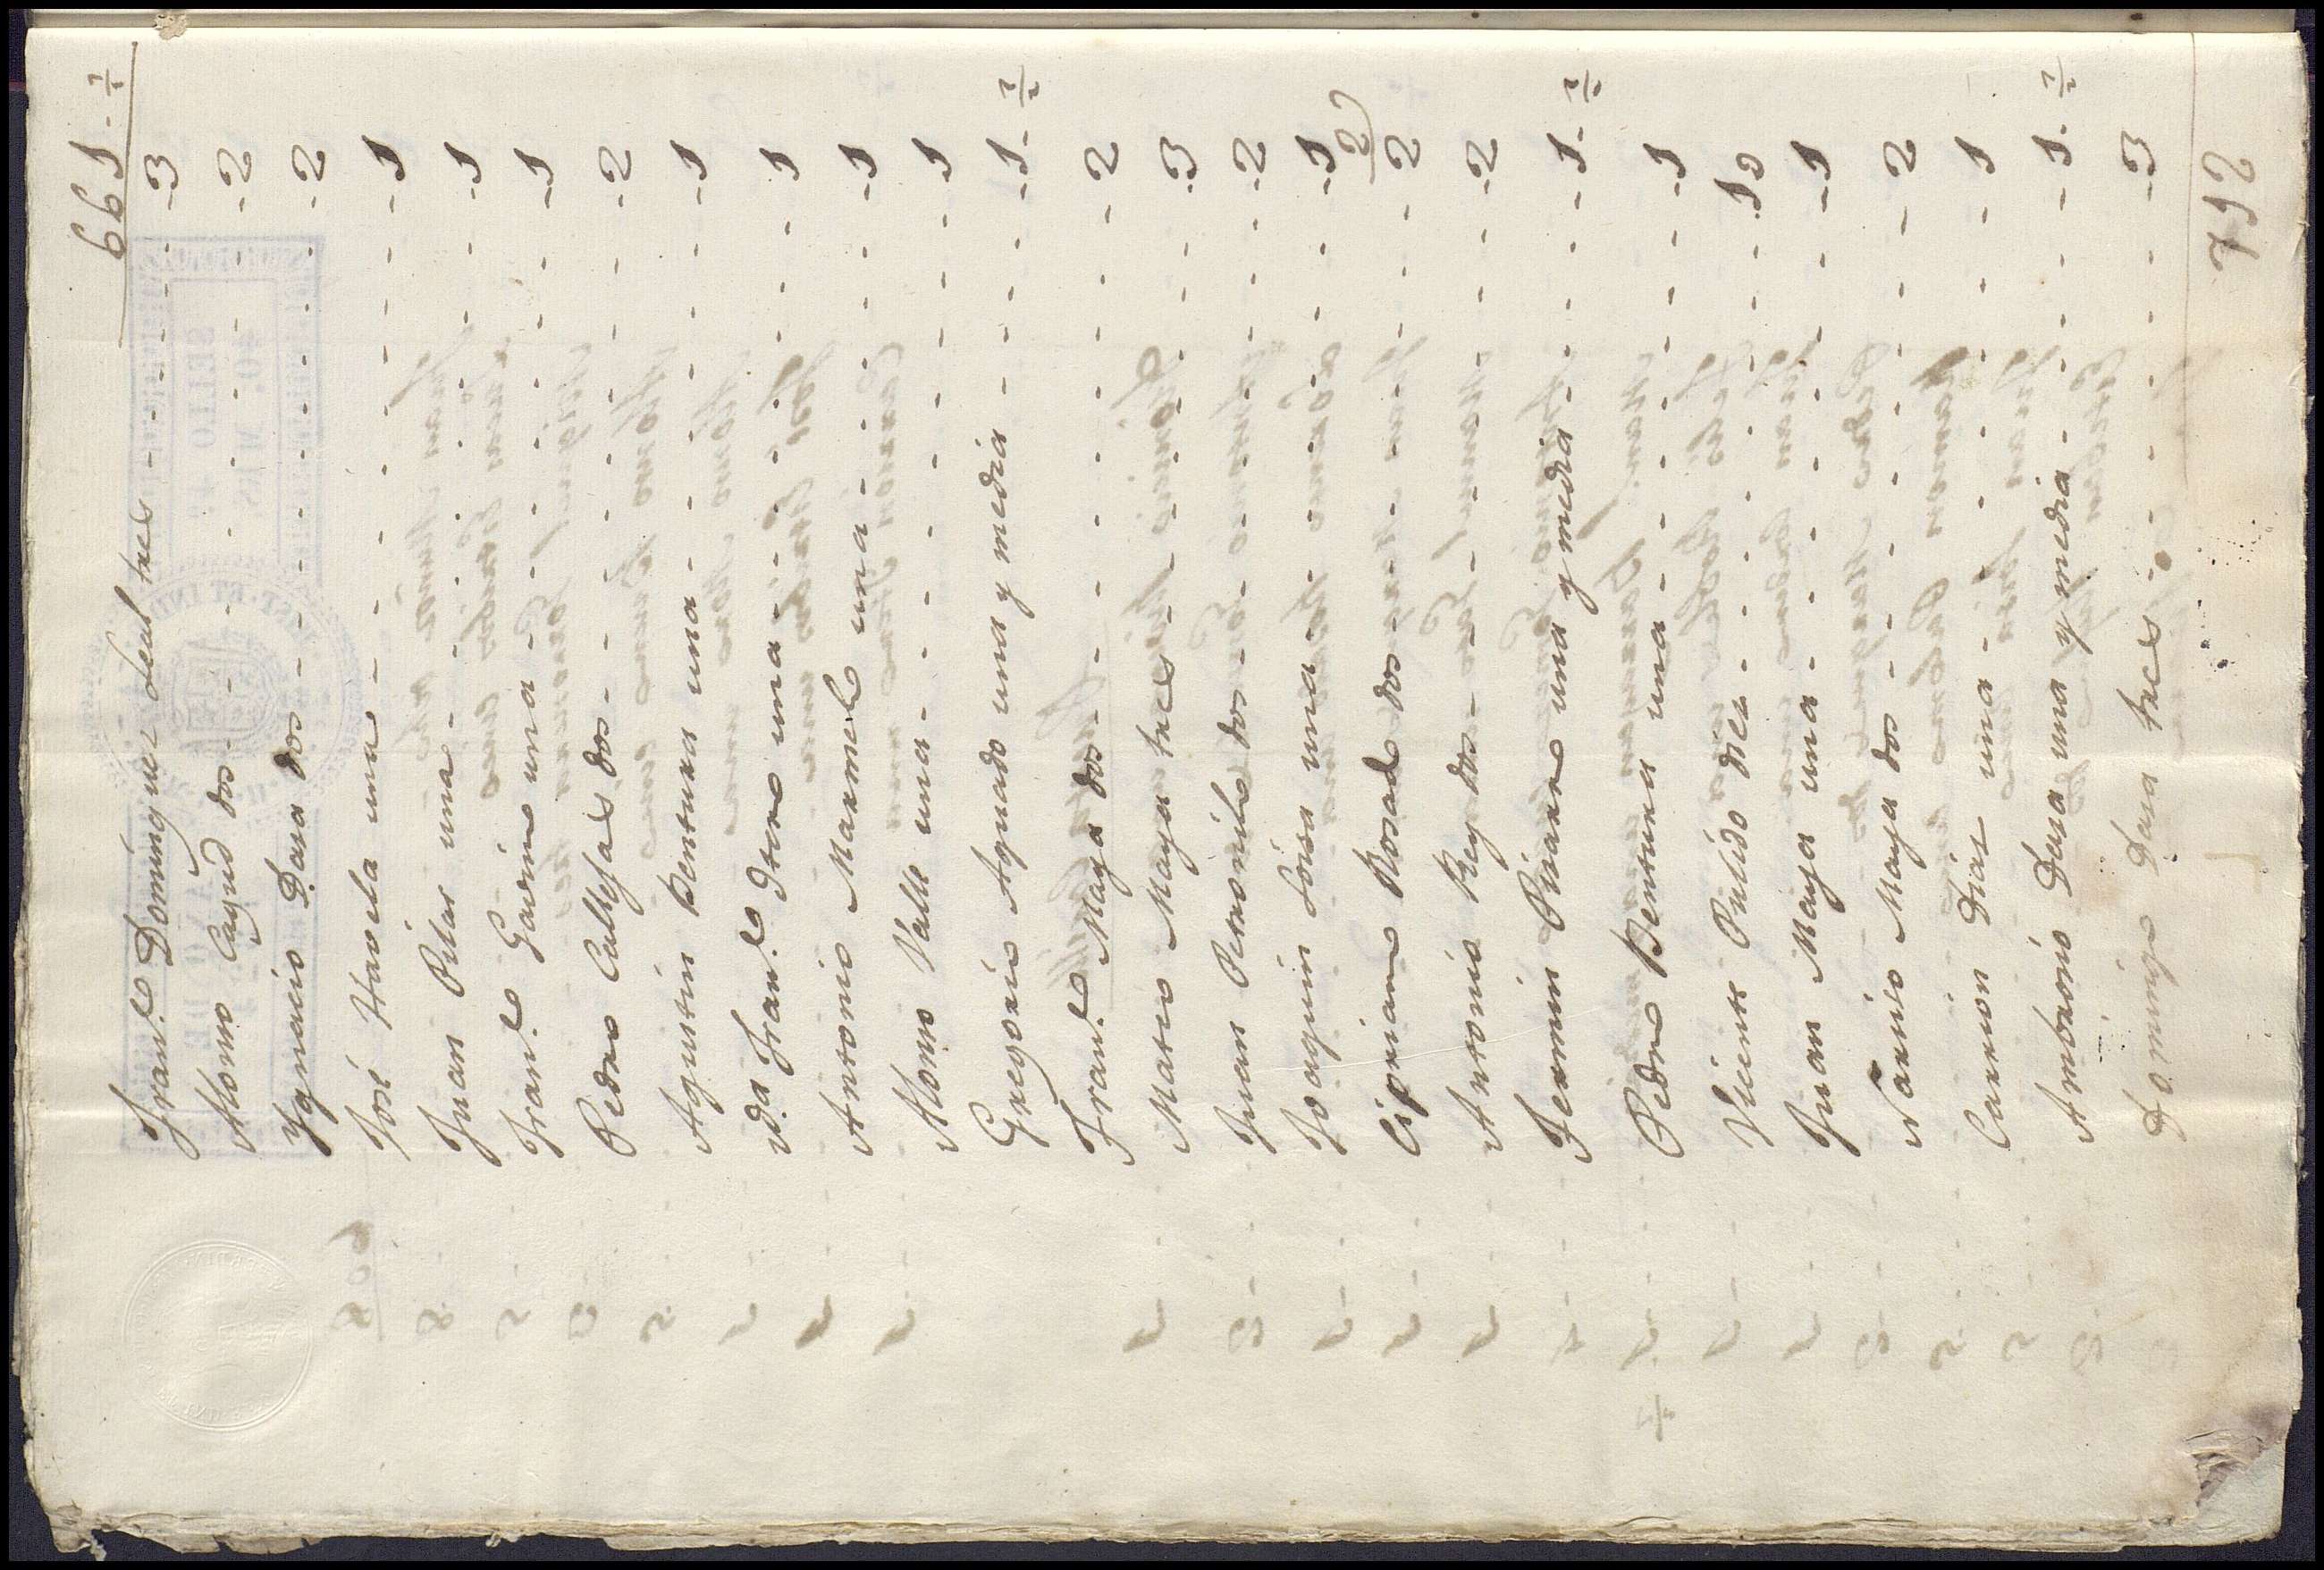 661-½
Fran.co Dominguez Leal tres - 3
Alonso Cayud dos - 2
Ygnacio Dasa dos - 2
José Varela una - 1
Juan Pilar una - 1
Fran.co Gavino una - 1
Pedro Callejas dos - 2
Agustin Bentura una - 1
Fran.co Otono una - 1
Antonio Maxmel una - 1
Alonso Valle una - 1
Gregorio Aguado una y media - 1-½
Fran.co Maya dos - 2
Mateo Maya tres - 3
Juan dos - 2
Joaquin una - 1
Cipriano Rosado dos - 2
Antonio Rey dos - 2
Fermin Pisano una y media - 1-½
Pedro Bentura una - 1
Vicente Pulido diez - 10
Juan Maya una - 1
Maya dos - 2
Carrion Diaz una - 1
Ambrosio Dasa una y media - 1-½
Domingo Dasa tres - 3
712